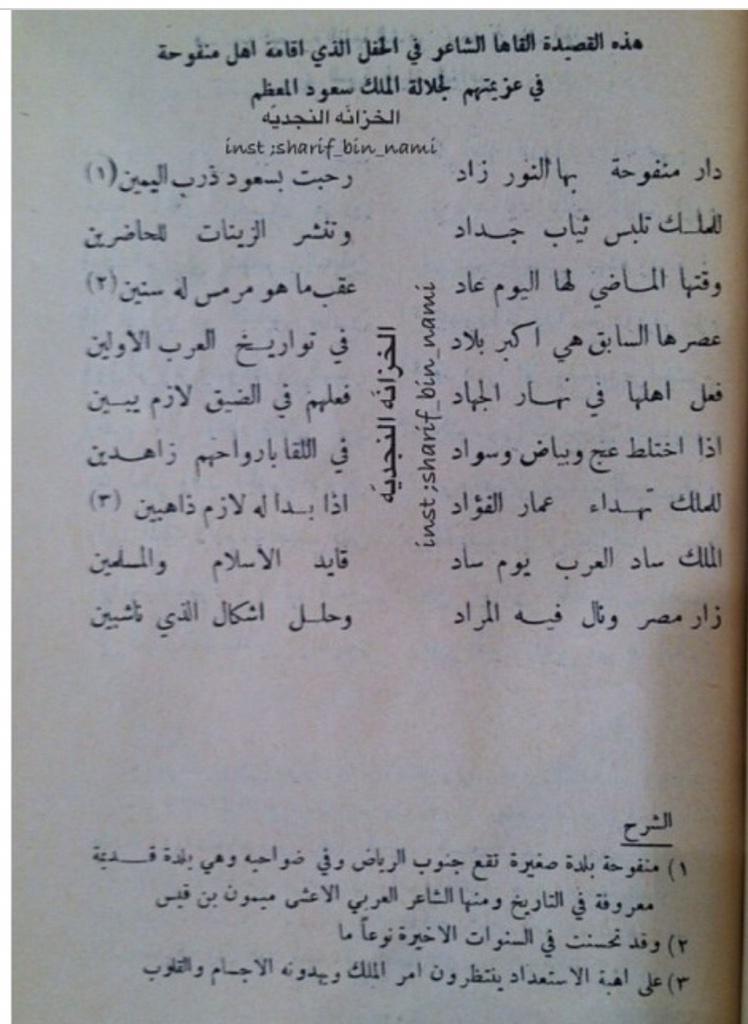 هذه القصيدة القاها الشاعر في الحفل الذي اقامة اهل منفوحة
في عزيمتهم لجلالة الملك سعود المعظم
الخزانه النجديه
inst ;sharif_bin_nami
دار منفوحة بها النور زاد رحبت بسعود ذرب اليمين (١)
للملك تلبس ثياب جداد وتنشر الزينات للحاضرين
وقتها الماضي لها اليوم عاد عقب ما هو مرمس له سنين (٢)
عصرها السابق هي اكبر بلاد في تواريخ العرب الاولين
فعل اهلها في نهار الجهاد فعلهم في الضيق لازم يبين
اذا اختلط عج وبياض وسواد في اللقا بارواحهم زاهدين
للملك تهداء عمار الفؤاد اذا بدا له لازم ذاهبين (٣)
الملك ساد العرب يوم ساد قايد الاسلام والمسلمين
زار مصر ونال فيه المراد وحلل اشكال الذي ناشبين
الخزانه النجديه
inst ;sharif_bin_nami
الشرح
١) منفوحة بلدة صغيرة تقع جنوب الرياض وفي ضواحيه وهي بلدة قديمة
معروفة في التاريخ ومنها الشاعر العربي الاعشى ميمون بن قيس
٢) وقد تحسنت في السنوات الاخيرة نوعاً ما
٣) على اهبة الاستعداد ينتظرون امر الملك ويهدونه الاجسام والقلوب